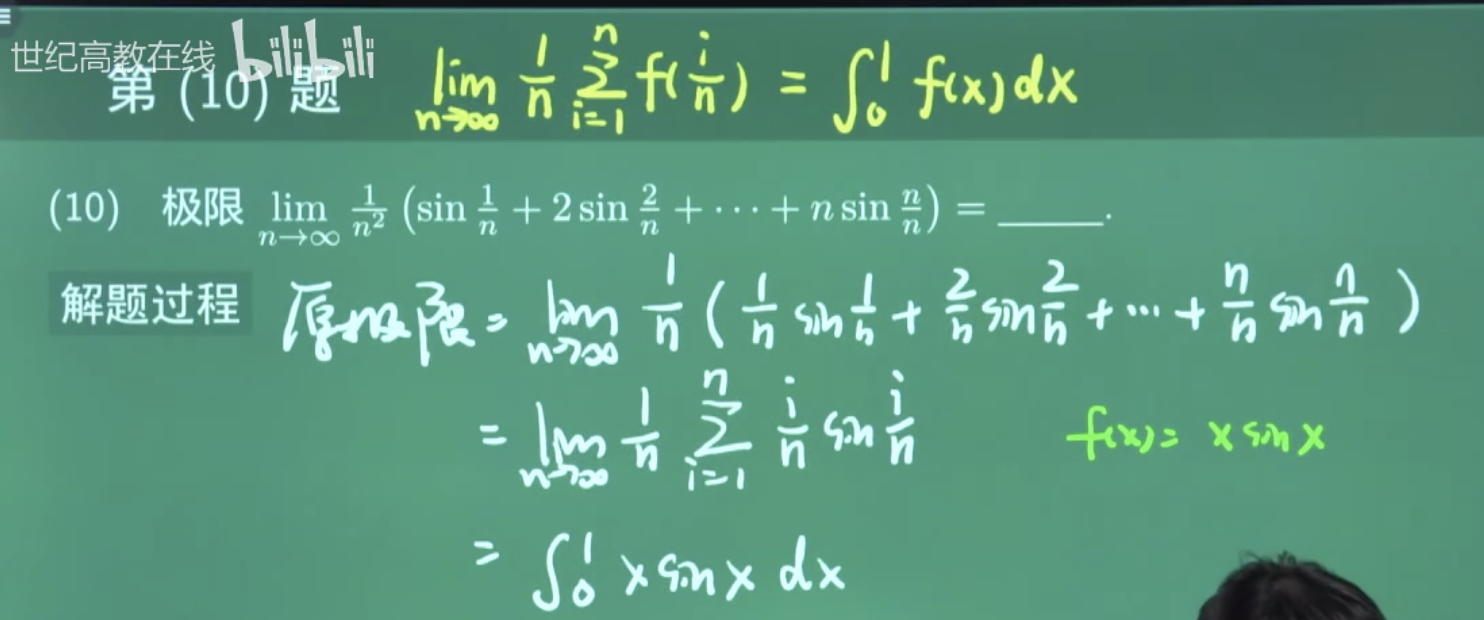 世纪高教在线 bilibili
第 (10) 题 lim n→∞ 1/n ∑ i=1 n f(i/n) = ∫₀¹ f(x)dx
(10) 极限 lim n→∞ 1/n² (sin 1/n + 2 sin 2/n + ⋯ + n sin n/n) = ______.
解题过程 原极限 = lim n→∞ 1/n (1/n sin 1/n + 2/n sin 2/n + ⋯ + n/n sin n/n)
= lim n→∞ 1/n ∑ i=1 n i/n sin i/n f(x) = x sin x
= ∫₀¹ x sin x dx